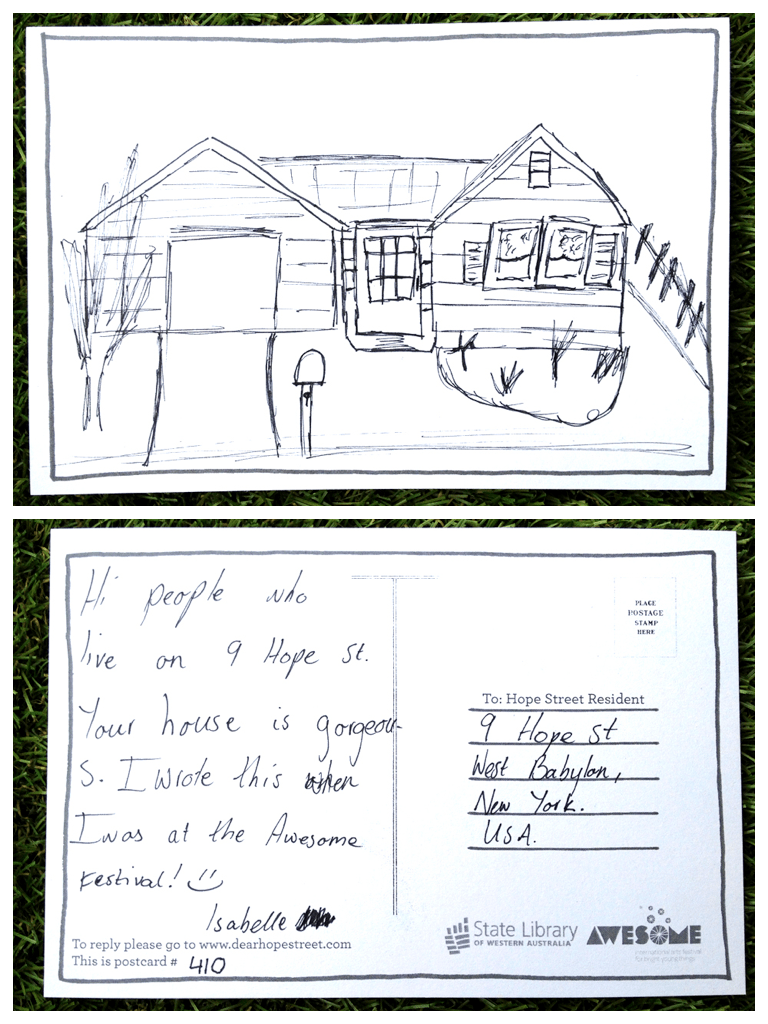 Hi people who
live on 9 Hope St.
Your house is gorgeou-
s. I wrote this when
I was at the Awesome
Festival! :)
Isabelle
To reply please go to www.dearhopestreet.com
This is postcard # 410
PLACE
POSTAGE
STAMP
HERE
To: Hope Street Resident
9 Hope St
West Babylon,
New York.
USA.
State Library
OF WESTERN AUSTRALIA
AWESOME
international arts festival
for bright young things